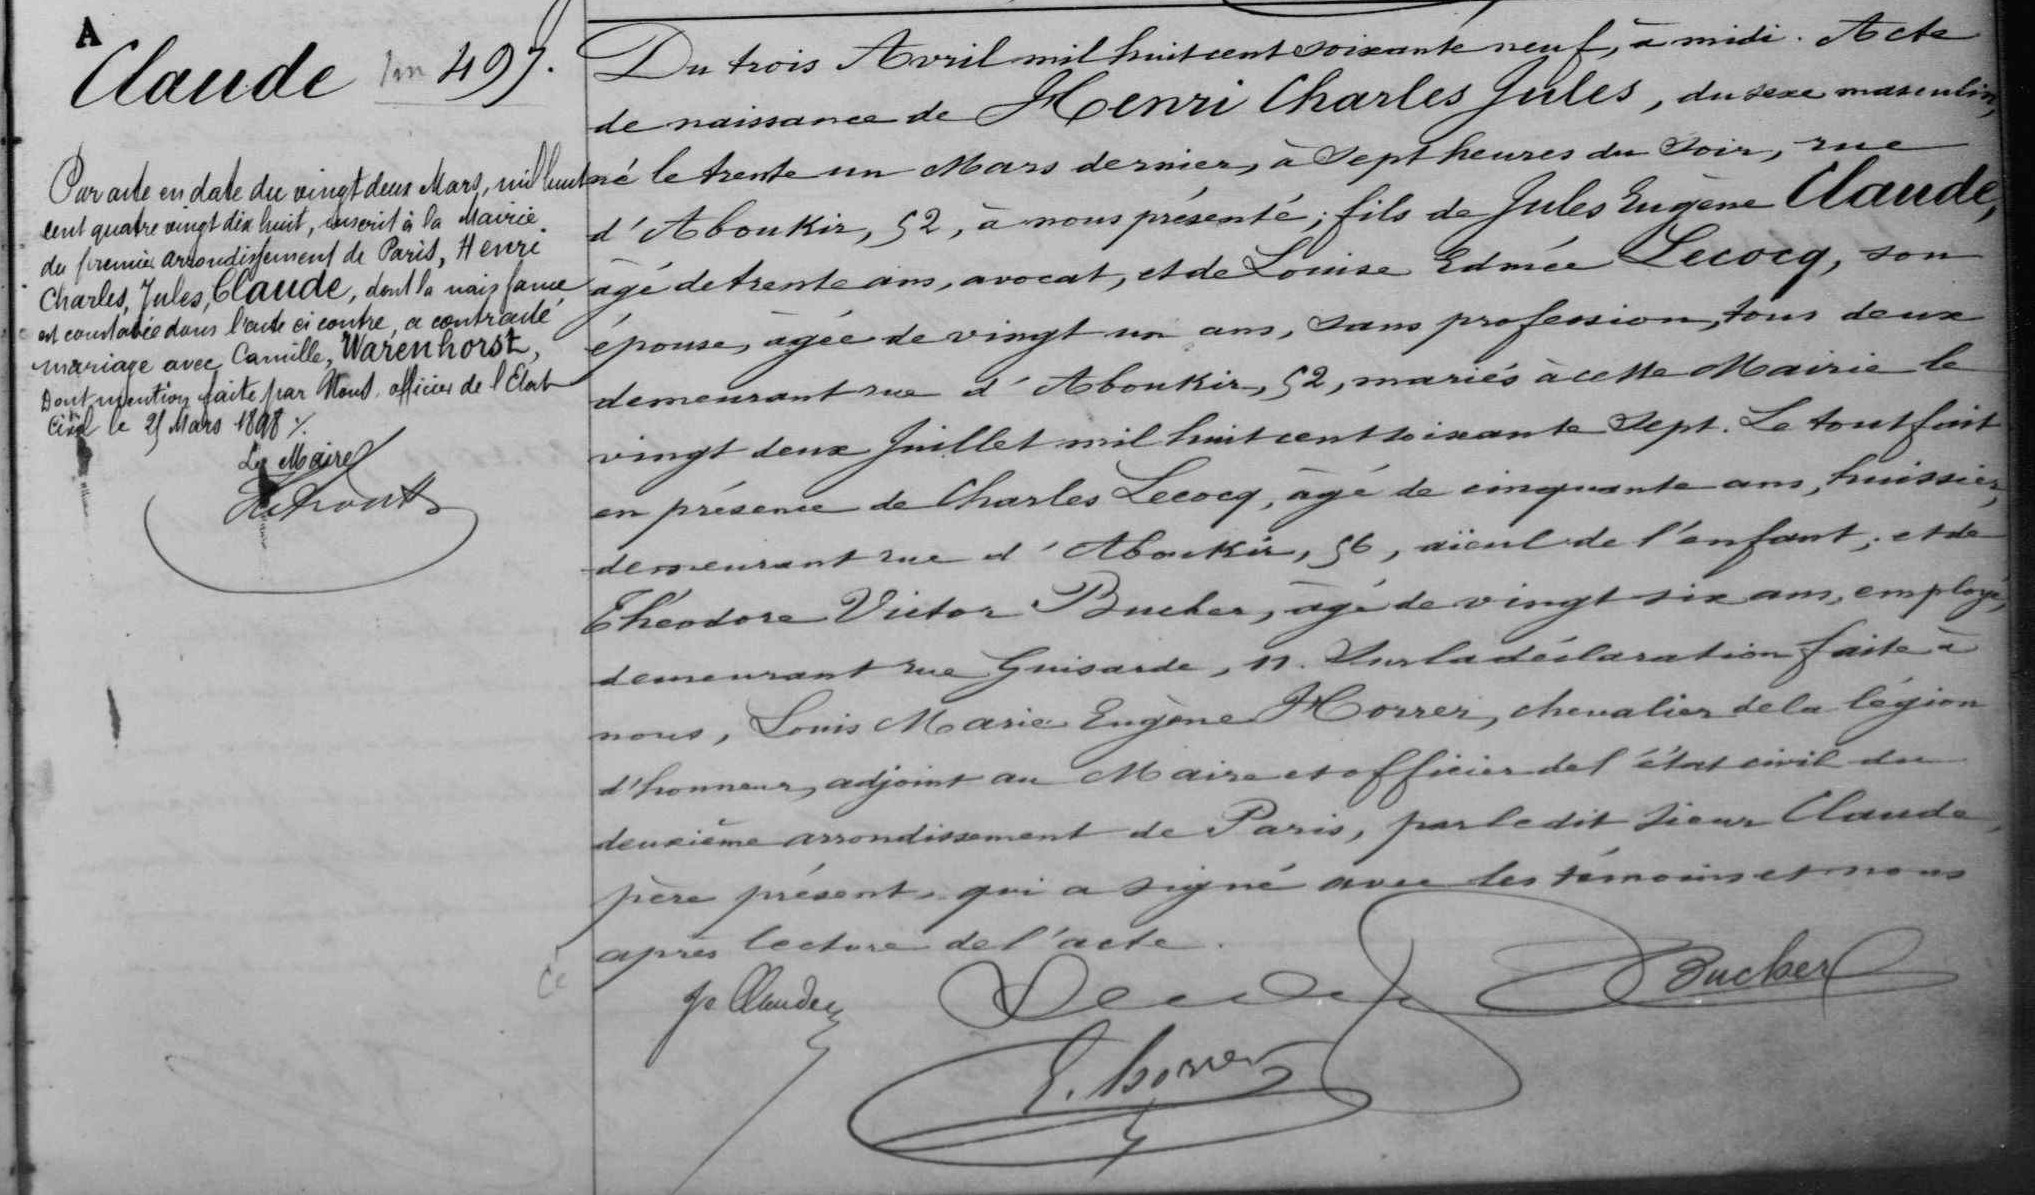 A
Claude 497.
Par acte en date du vingt deux Mars, mil huit
cent quatre vingt dix huit, inscrit à la Mairie
du premier arrondissement de Paris, Henri
Charles, Jules, Claude, dont la naissance
est constatée dans l'acte ci contre, a contracté
mariage avec Camille, Warenhorst,
Dont mention faite par Nous, officier de l'Etat
Civil le 25 Mars 1898 /.
Le Maire
Du trois Avril mil huit cent soixante neuf, à midi. Acte
de naissance de Henri Charles Jules, du sexe masculin,
né le trente un Mars dernier, à sept heures du soir, rue
d'Aboukir, 52, à nous présenté; fils de Jules Eugène Claude,
âgé de trente ans, avocat, et de Louise Edmée Lecocq, son
épouse, âgée de vingt un ans, sans profession, tous deux
demeurant rue d'Aboukir, 52, mariés à cette Mairie le
vingt deux Juillet mil huit cent soixante sept. Le tout fait
en présence de Charles Lecocq, âgé de cinquante ans, huissier,
demeurant rue d'Aboukir, 56, aïeul de l'enfant; et de
Théodore Victor Bucher, âgé de vingt six ans, employé,
demeurant rue Guisarde, 11. Sur la déclaration faite à
nous, Louis Marie Eugène Horrer, chevalier de la légion
d'honneur, adjoint au Maire et officier de l'état civil du
deuxième arrondissement de Paris, par le dit sieur Claude,
père présent, qui a signé avec les témoins et nous
après lecture de l'acte.
Je Claude
Bucher
E. horrer